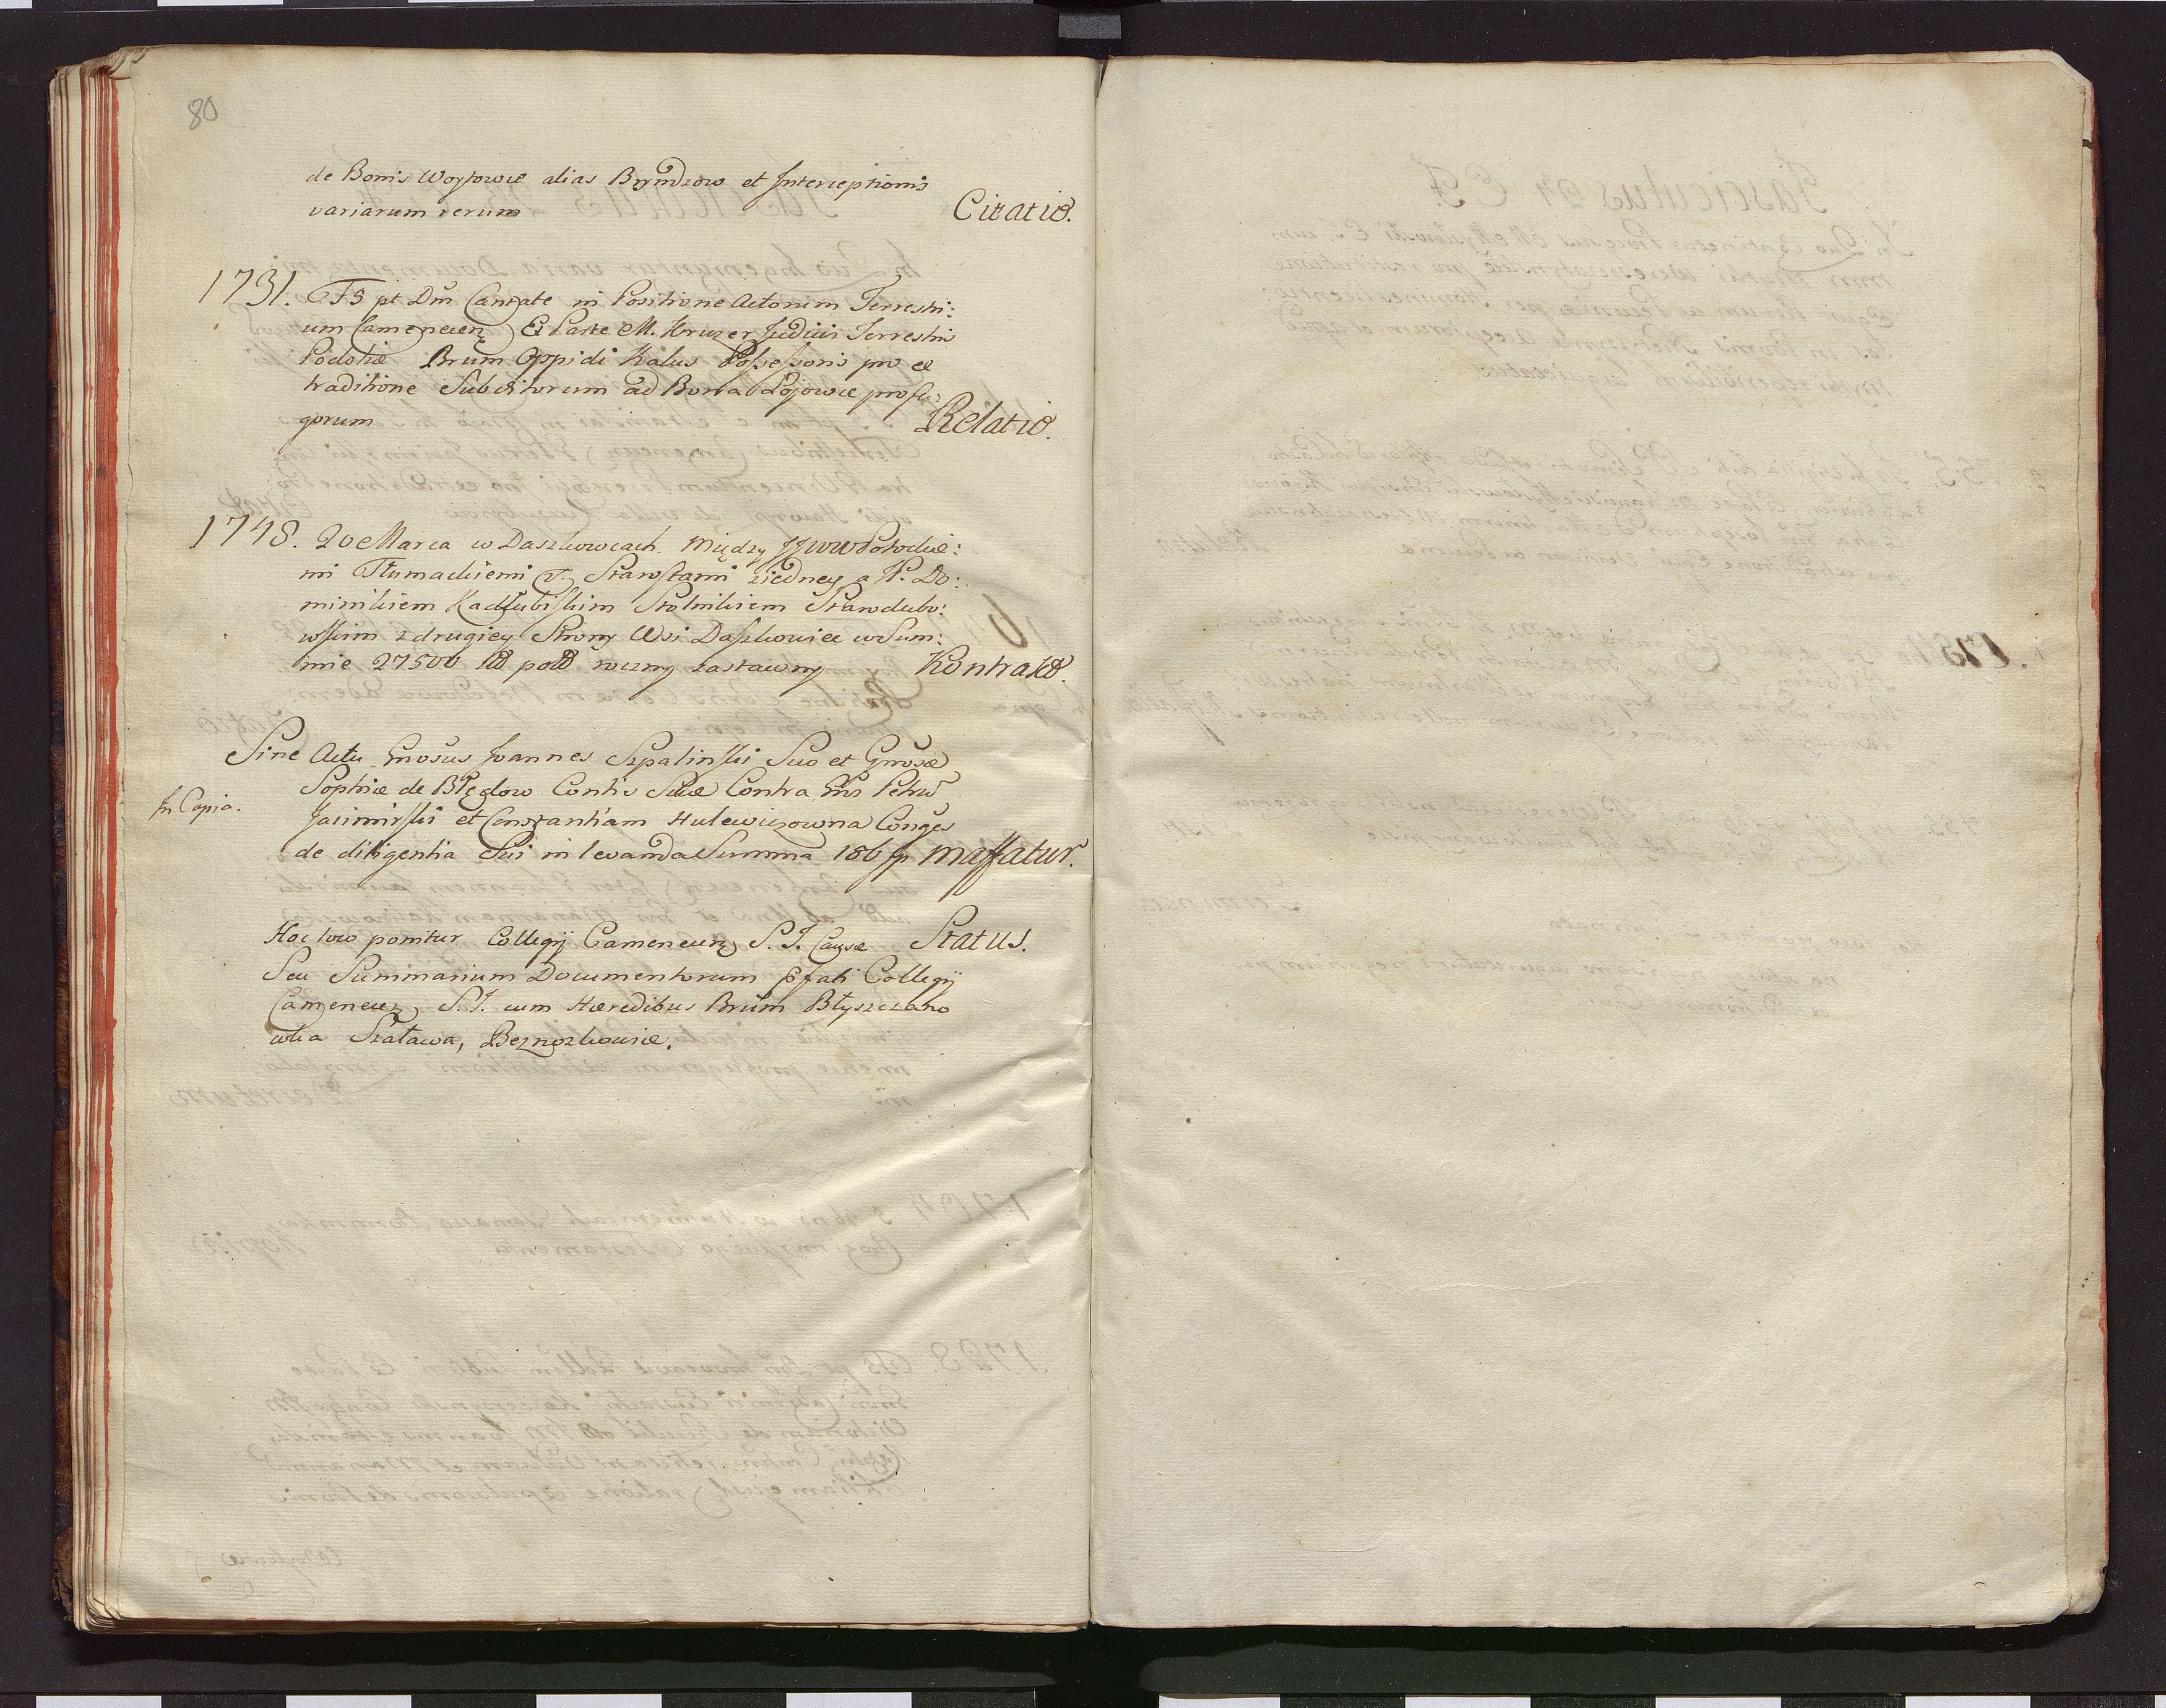 80
de Bonis Woytowce alias Bryndzow et Interceptionis
variarum rerum Citatio.
1731. F5 pt Dm̄ Cantate in Positione Actorum Terrestri:
um Camenecen Ex Parte M. Kruzer Judicis Terrestris
Podoliæ Brum Oppidi Kalus Possessoris pro ex
traditione Subditorum ad Bona Łojowce profu:
gorum Relatio.
1748. 20 Marca w Daszkowcach. Między JJWW Potockie:
mi Tłumackiemi Starostami ziedney a JP. Do:
minikiem Kadłubiskim Stolnikiem Starodubo:
wskim z drugiey Strony Wsi Daszkowiec w Sum:
mie 27500 roczny zastawny Kontrakt.
Sine Actu Gnosus Joannes Szpalinski Suo et Gnosæ
Sophiæ de Błędow Contis Suæ Contra Gnos Petrū
In Copia.
Jacimirski et Constantiam Hulewiczowna Conges
de diligentia Sui in levanda Summa 186 fp Maffatur.
Hoc loco ponitur Collegij Camenecen S. J. Causæ Status.
Seu Summarium Documentorum pfati Collegij
Camenecen S. J. cum Hæredibus Brum Błyszczano
wka Szatawa, Beznoskowce.